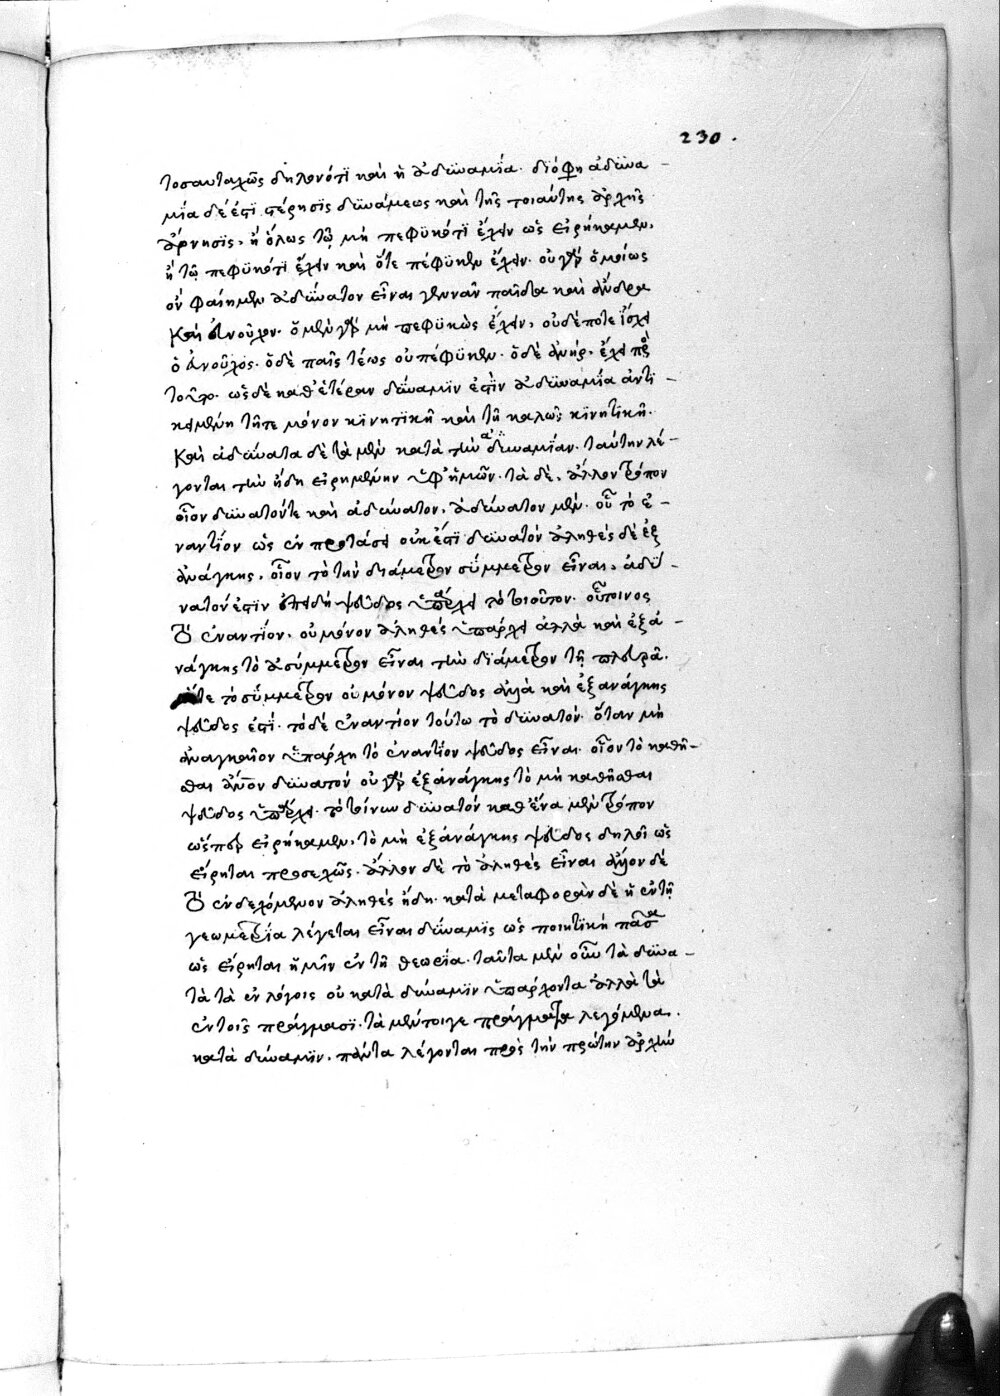 230.
τοσαυταχῶς δηλονότι καὶ ἡ ἀδυναμία. διό φη ἀδυνα-
μία δέ ἐστι στέρησις δυνάμεως καὶ τῆς τοιαύτης ἀρχῆς
ἄρνησις, ἢ ὅλως τῷ μὴ πεφυκότι ἔχειν ὡς εἰρήκαμεν,
ἢ τῷ πεφυκότι ἔχειν καὶ ὅτε πέφυκεν ἔχειν. οὐ γὰρ ὁμοίως
ἂν φαίημεν ἀδύνατον εἶναι γεννᾶν παῖδα καὶ ἄνδρα
καὶ εὐνοῦχον. ὁ μὲν γὰρ μὴ πεφυκὼς ἔχειν, οὐδέποτε ἴσχει
ὁ εὐνοῦχος. ὁ δὲ παῖς τέως οὐ πέφυκεν. ὁ δὲ ἀνήρ, ἔχει πρὸς
τοῦτο. ὡς δὲ καθ' ἑτέραν δύναμιν ἐστὶν ἀδυναμία ἀντι-
κειμένη τῆτε μόνον κινητικῆ καὶ τῆ καλῶς κινητικῆ.
καὶ ἀδύνατα δὲ τὰ μὲν κατὰ τὴν ἀδυναμίαν. ταύτην λέ-
γονται τὴν ἤδη εἰρημένην ὑφ' ἡμῶν. τὰ δὲ, ἄλλον τρόπον
οἷον δυνατόντε καὶ ἀδύνατον. ἀδύνατον μὲν. οὗ τὸ ἐ-
ναντίον ὡς ἐν προτάσει οὐκ ἔστι δυνατὸν ἀληθὲς δὲ ἐξ
ἀνάγκης, οἷον τὸ τὴν διάμετρον σύμμετρον εἶναι, ἀδύ-
νατόν ἐστιν ἐπειδὴ ψεῦδος ὑπάρχει τὸ τοιοῦτον. οὗτινος
τὸ ἐναντίον, οὐ μόνον ἀληθὲς ὑπάρχει ἀλλὰ καὶ ἐξ ἀ-
νάγκης τὸ ἀσύμμετρον εἶναι τὴν διάμετρον τῆ πλευρᾶ.
ὥστε τὸ σύμμετρον οὐ μόνον ψεῦδος ἀλλὰ καὶ ἐξ ἀνάγκης
ψεῦδος ἐστί. τὸ δὲ ἐναντίον τούτω τὸ δυνατόν. ὅταν μὴ
ἀναγκαῖον ὑπάρχη τὸ ἐναντίον ψεῦδος εἶναι. οἷον τὸ καθῆ-
σθαι ἄνον δυνατόν οὐ γὰρ ἐξ ἀνάγκης τὸ μὴ καθῆσθαι
ψεῦδος ὑπάρχει. τὸ τοίνυν δυνατὸν καθ' ἕνα μὲν τρόπον
ὥσπερ εἰρήκαμεν, τὸ μὴ ἐξ ἀνάγκης ψεῦδος δηλοῖ ὡς
εἴρηται προσεχῶς. ἄλλον δὲ τὸ ἀληθὲς εἶναι ἄλλον δὲ
τὸ ἐνδεχόμενον ἀληθὲς ἤδη. κατὰ μεταφορὰν δὲ ἡ ἐν τῆ
γεωμετρία λέγεται εἶναι δύναμις ὡς ποιητικὴ πᾶσα
ὡς εἴρηται ἡμῖν ἐν τῆ θεωρία. ταῦτα μὲν οὖν τὰ δυνα-
τὰ τὰ ἐν λόγοις οὐ κατὰ δύναμιν ὑπάρχοντα ἀλλὰ τὰ
ἐν τοῖς πράγμασι. τὰ μέντοιγε πράγματα λεγόμενα.
κατὰ δύναμιν, πάντα λέγονται πρὸς τὴν πρώτην ἀρχὴν